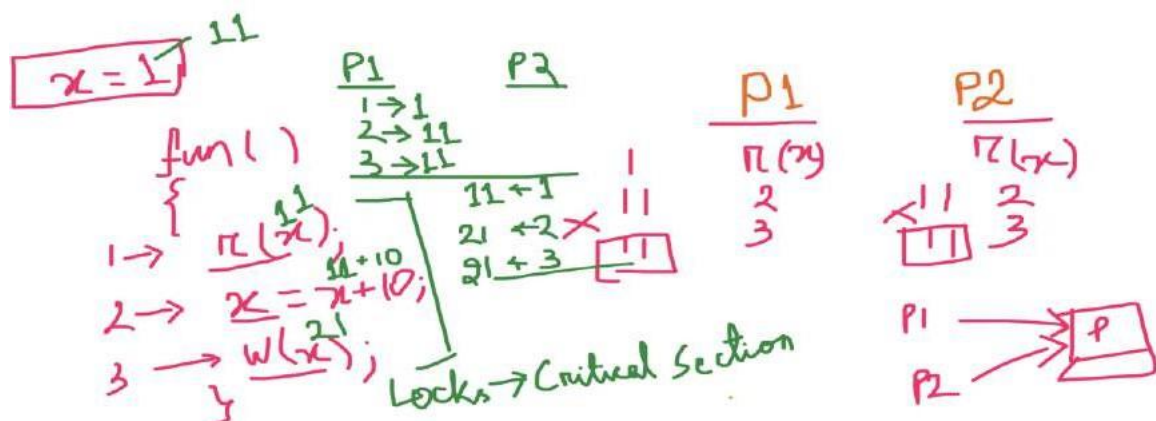 x = 1
11
fun( )
{
1 → r(x);
11
2 → x = x+10;
11+10
3 → w(x);
21
}
P1
1→1
2→11
3→11
P2
11 ← 1
21 ← 2
21 ← 3
Locks → Critical Section
1
11
11
P1
r(x)
2
3
P2
r(x)
11 2
11 3
P1
P2
P